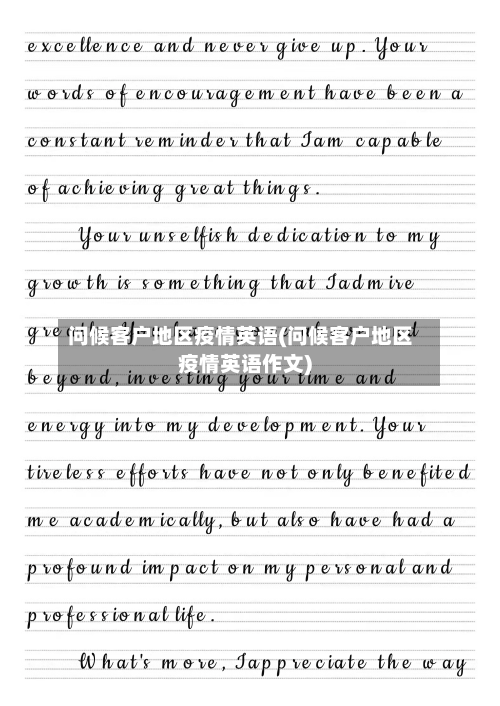 excellence and never give up. Your
words of encouragement have been a
constant reminder that I am capable
of achieving great things.
Your unselfish dedication to my
growth is something that I admire
问候客户地区疫情英语(问候客户地区
疫情英语作文)
beyond, investing your time and
energy into my development. Your
tireless efforts have not only benefited
me academically, but also have had a
profound impact on my personal and
professional life.
What's more, I appreciate the way